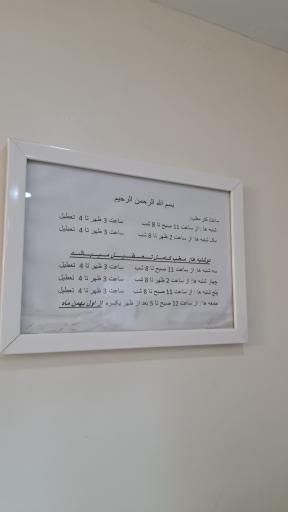 بسم الله الرحمن الرحیم
ساعت کار مطب:
شنبه ها : از ساعت 11 صبح تا 8 شب ساعت 3 ظهر تا 4 تعطیل
یک شنبه ها: از ساعت 2 ظهر تا 8 شب ساعت 3 ظهر تا 4 تعطیل
دوشنبه ها: مطب کامل تعطیل میباشد
سه شنبه ها: از ساعت 11 صبح تا 8 شب ساعت 3 ظهر تا 4 تعطیل
چهار شنبه ها: از ساعت 2 ظهر تا 8 شب ساعت 3 ظهر تا 4 تعطیل
پنج شنبه ها : از ساعت 11 صبح تا 8 شب ساعت 3 ظهر تا 4 تعطیل
جمعه ها : از ساعت 12 صبح تا 5 بعد از ظهر یکسره از اول بهمن ماه